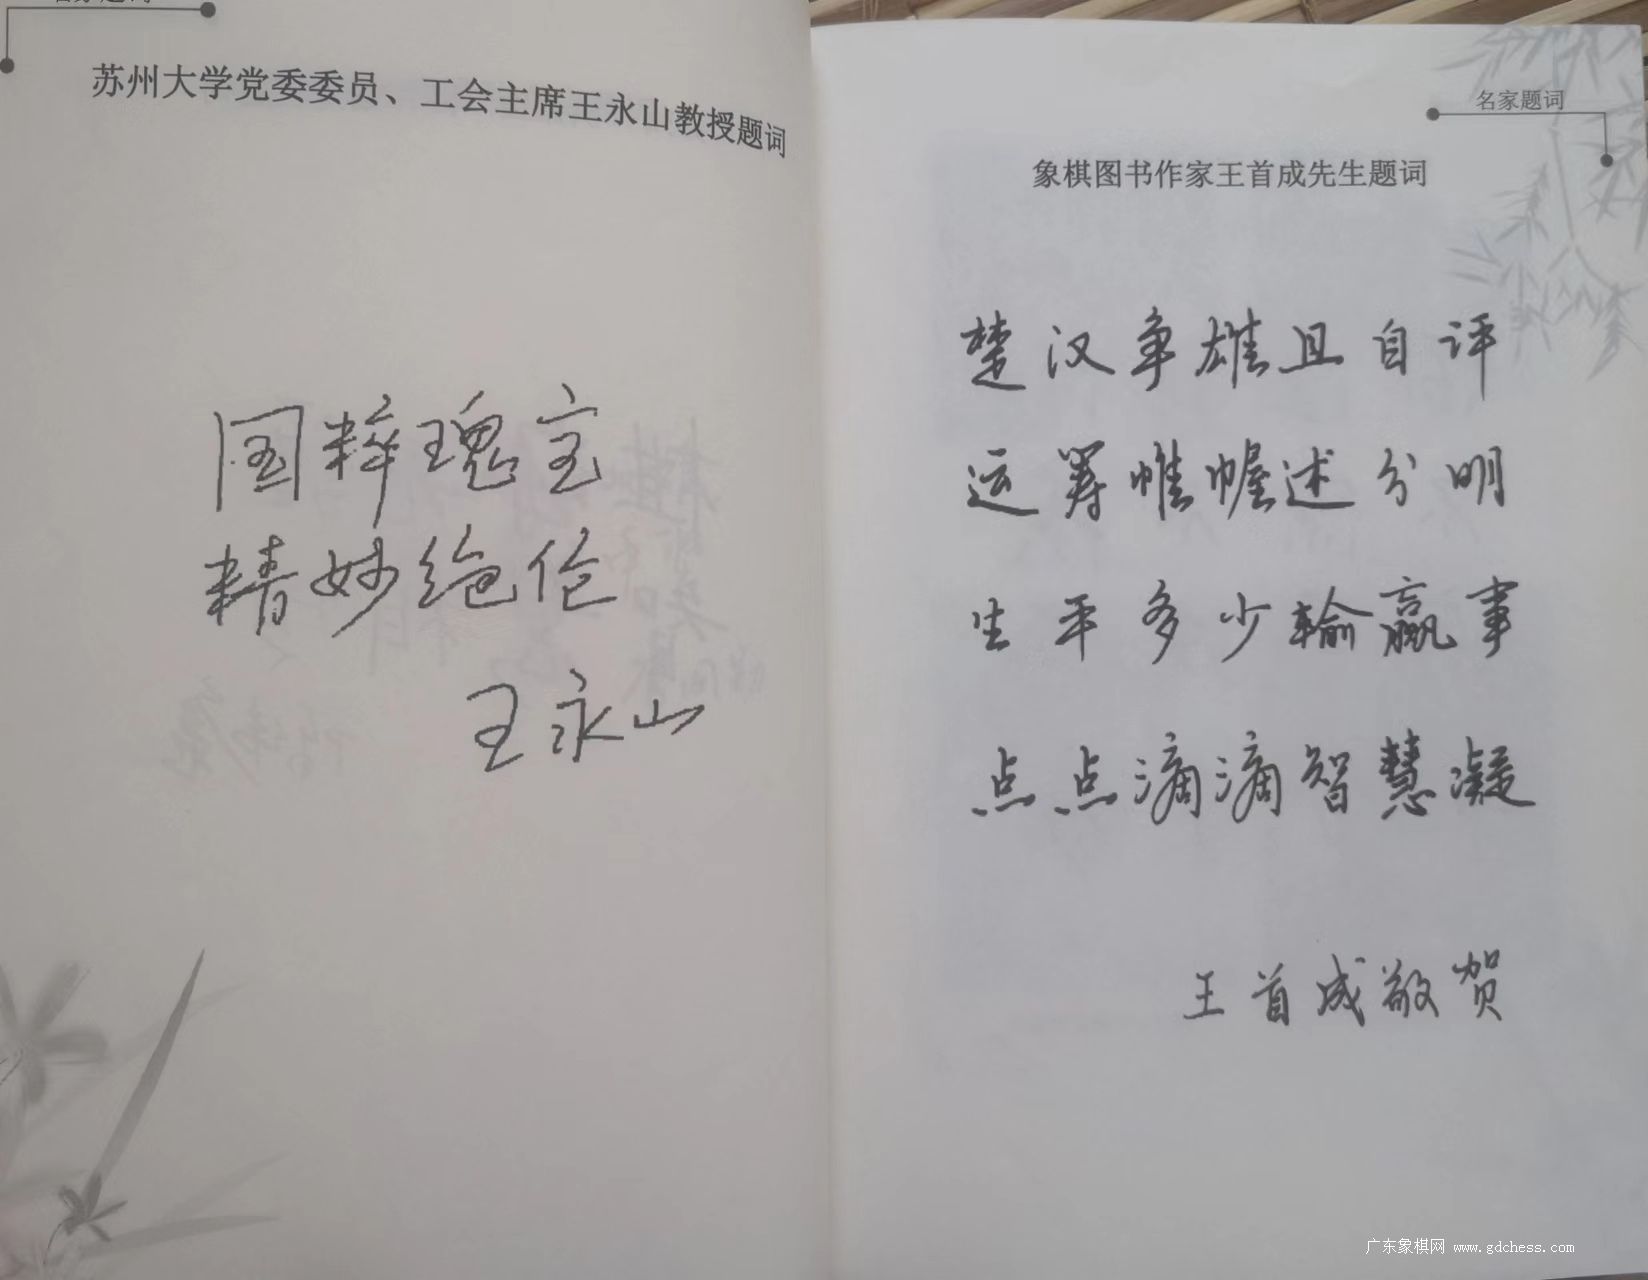 名家题词
苏州大学党委委员、工会主席王永山教授题词
国粹瑰宝
精妙绝伦
王永山
名家题词
象棋图书作家王首成先生题词
楚汉争雄且自评
运筹帷幄述分明
生平多少输赢事
点点滴滴智慧凝
王首成敬贺
广东象棋网 www.gdchess.com